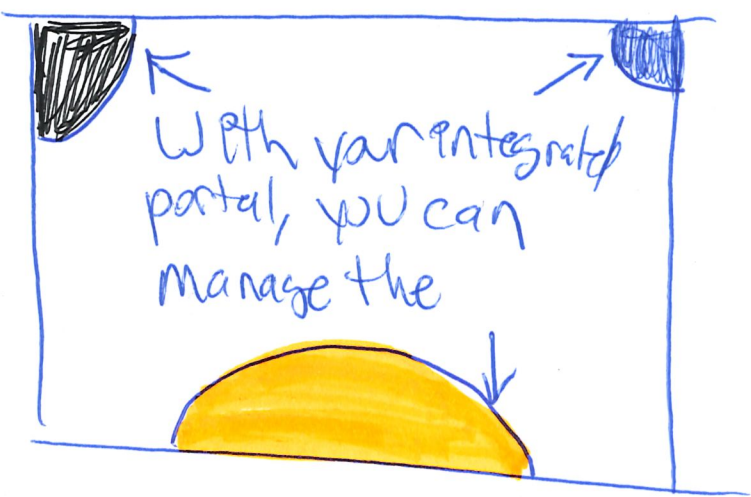 With your integrated
portal, you can
manage the